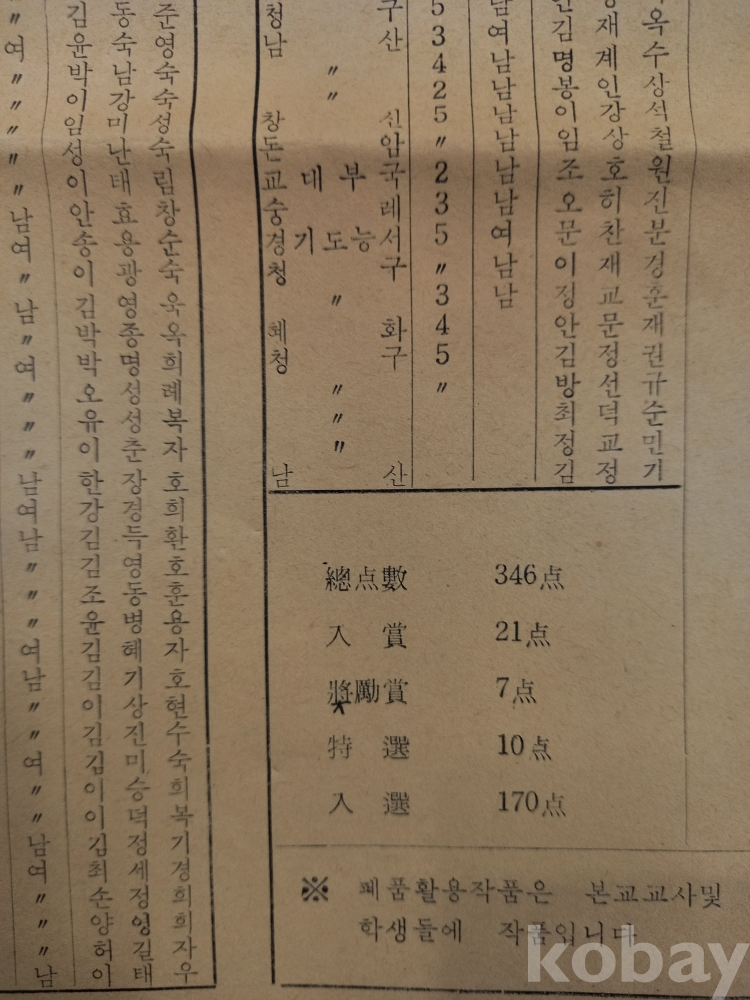 〃 김동준
여 윤숙영
〃 박남숙
〃 이강숙
〃 임미성
〃 성난숙
〃 이태림
남 안효창
여 송용순
〃 이광숙
남 김영욱
〃 박종옥
여 박명희
〃 오성례
〃 유성복
〃 이춘자
남 한장호
여 강경희
남 김득환
〃 김영호
〃 조동훈
〃 윤병용
여 김혜자
남 김기호
〃 이상현
〃 김진수
여 김미숙
〃 이승희
〃 이덕복
남 김정기
여 최세경
〃 손정희
〃 양영희
〃 허길자
남 이태우
청구 5
남산 3 여 김재옥
〃 4 남 명계수
〃 2 남 봉인상
창신 5 남 이강석
돈암 〃 남 임상철
교대부국 2 남 조호원
숭례 3 남 오히진
경기도능서 5 여 문찬분
청구 〃 남 이재경
〃 3 남 정교훈
혜화 4 안문재
청구 5 김정권
〃 〃 방선규
〃 최덕순
〃 정교민
남산 김정기
總点數 346点
入賞 21点
奬勵賞 7点
特選 10点
入選 170点
※ 폐품활용작품은 본교교사및
학생들에 작품입니다
kobay